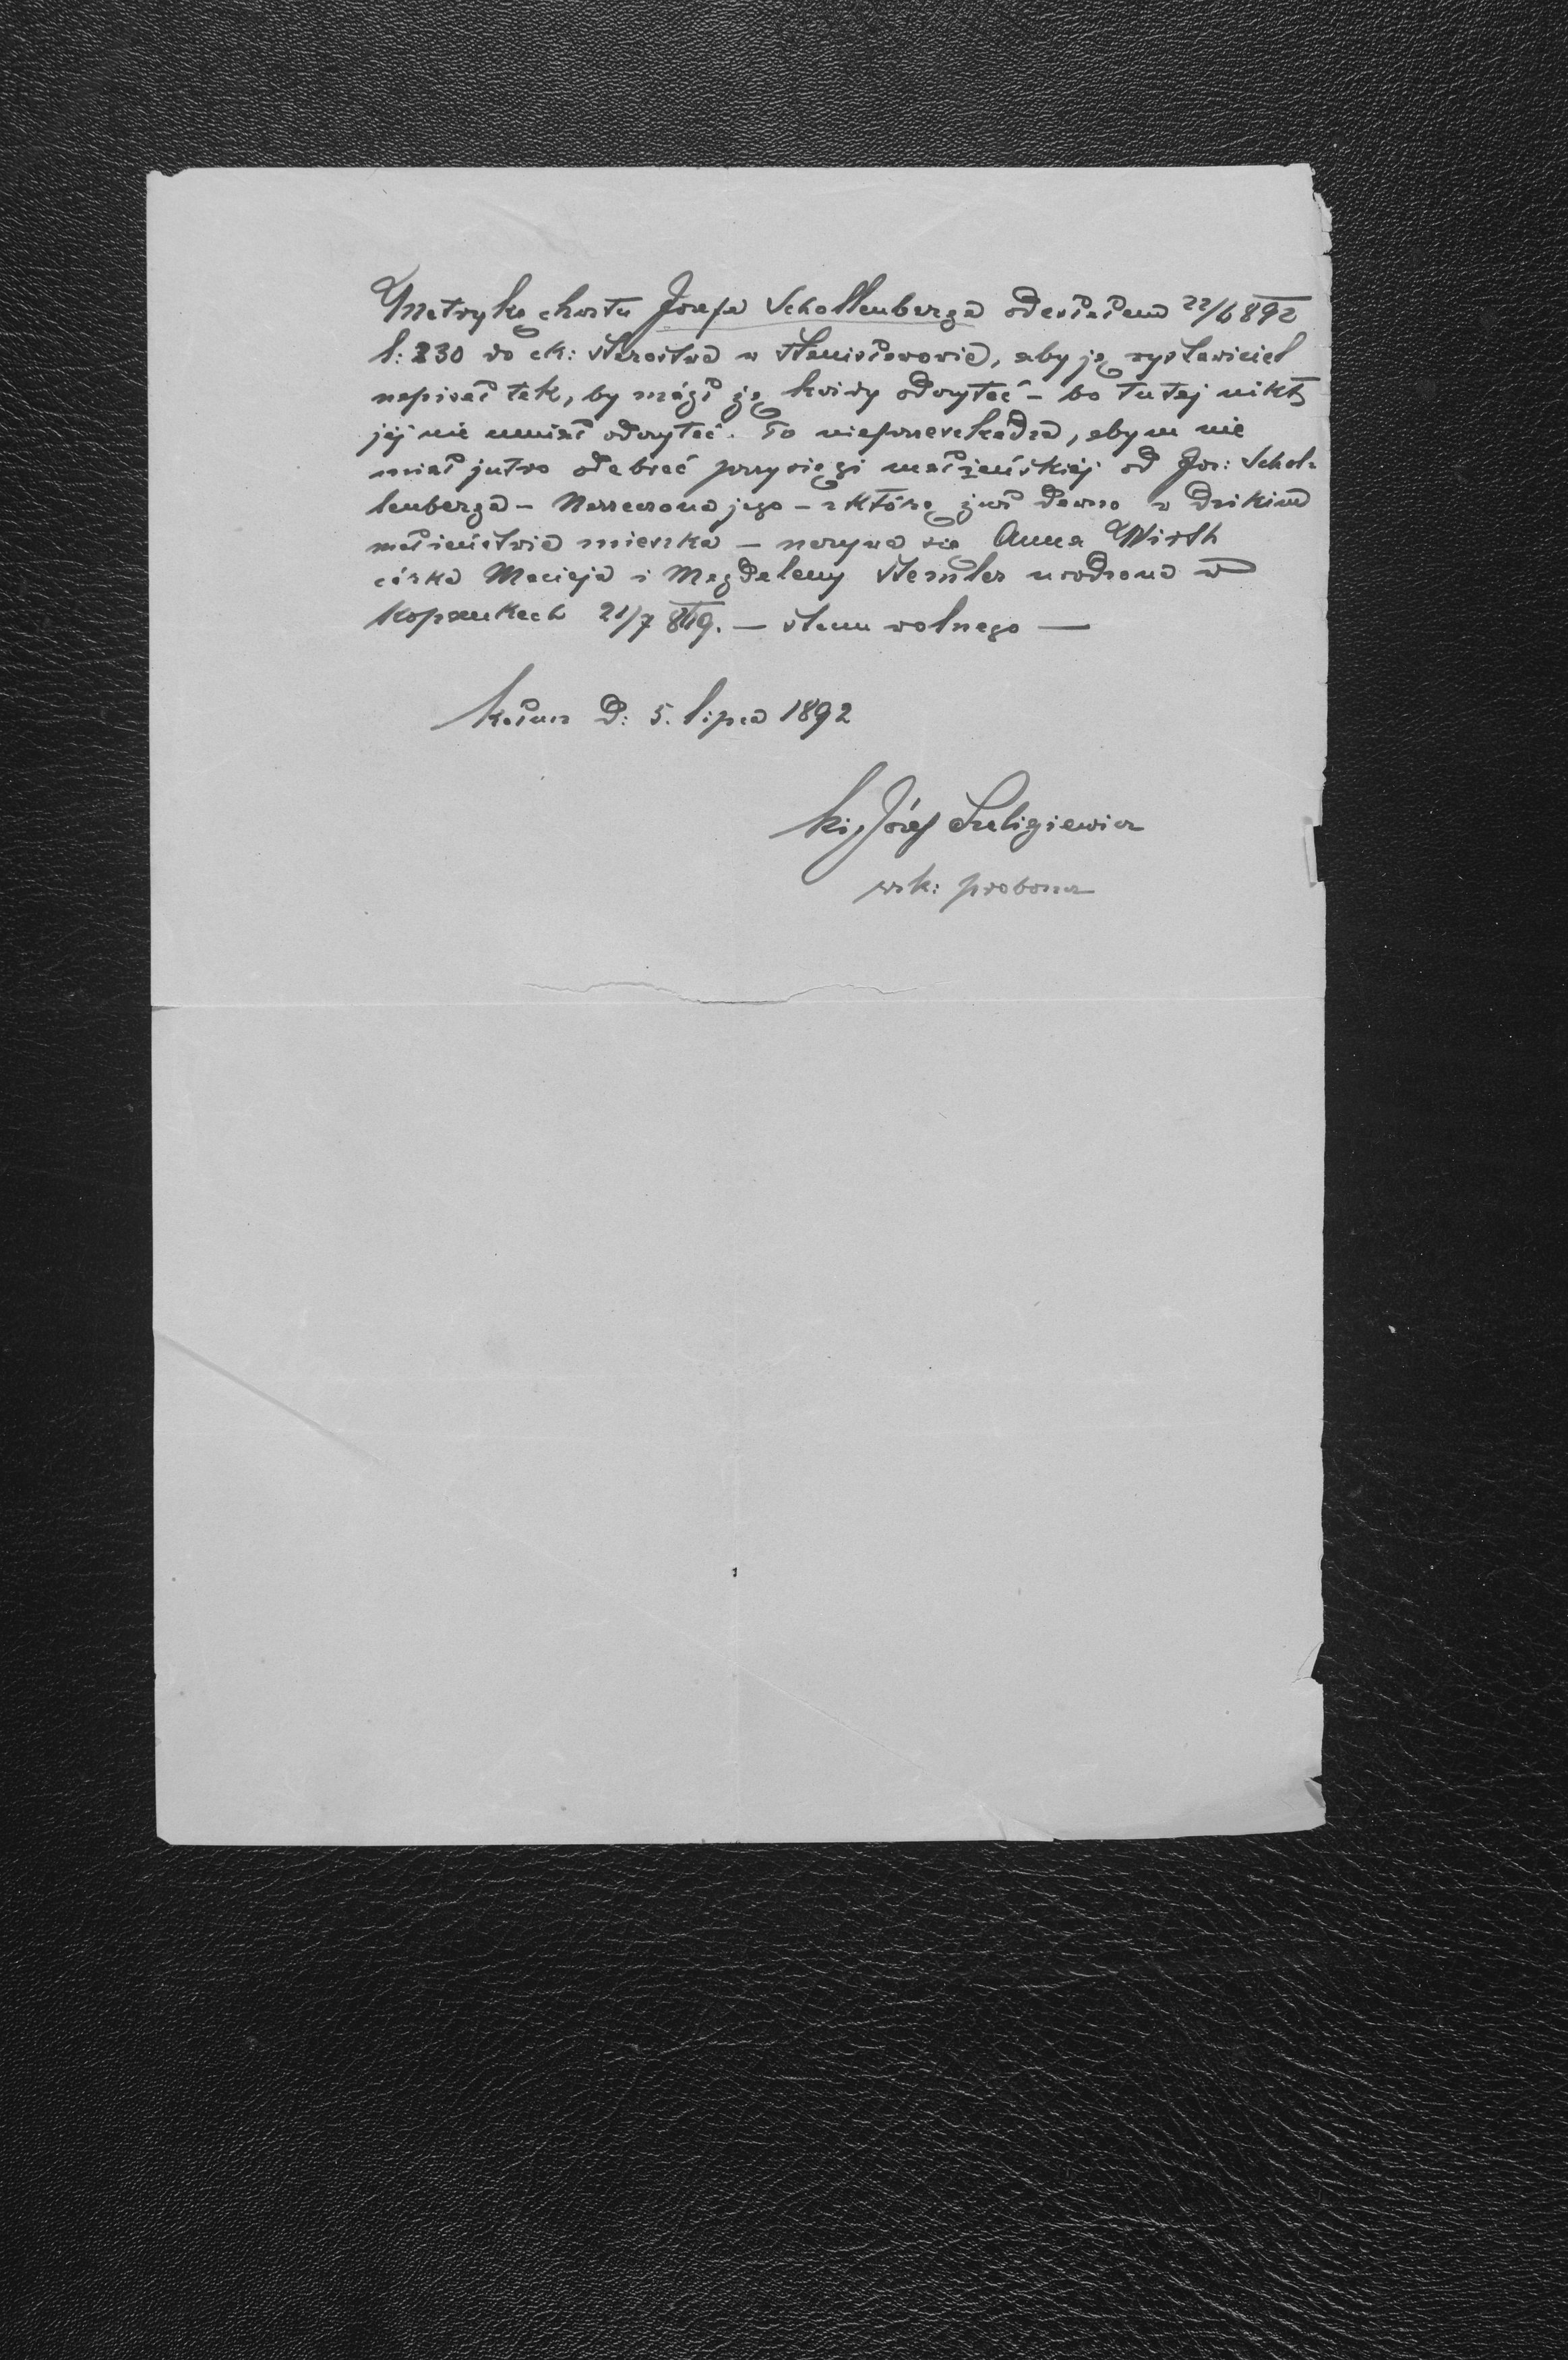 Metrykę chrztu Józefa Schollenberga odesłałem 22/6 892
l: 230 do ck: Starostwa w Stanisławowie, aby ją wystawiciel
napisał tak, by mógł ją każdy odczytać – bo tutaj nikt
jej nie umiał odczytać. To nieprzeszkadza, abym nie
miał jutro odebrać przysięgi małżeńskiej od Józ: Schol-
lenberga – Narzeczona jego – z którą już dawno w dzikim
małżeństwie mieszka – nazywa się Anna Wirth
córka Macieja i Magdaleny Stemler urodzona w
Kopankach 21/7 869. – stanu wolnego –
Kałusz d: 5. lipca 1892
Ks Józef Szeligiewicz
wik: proboszcz